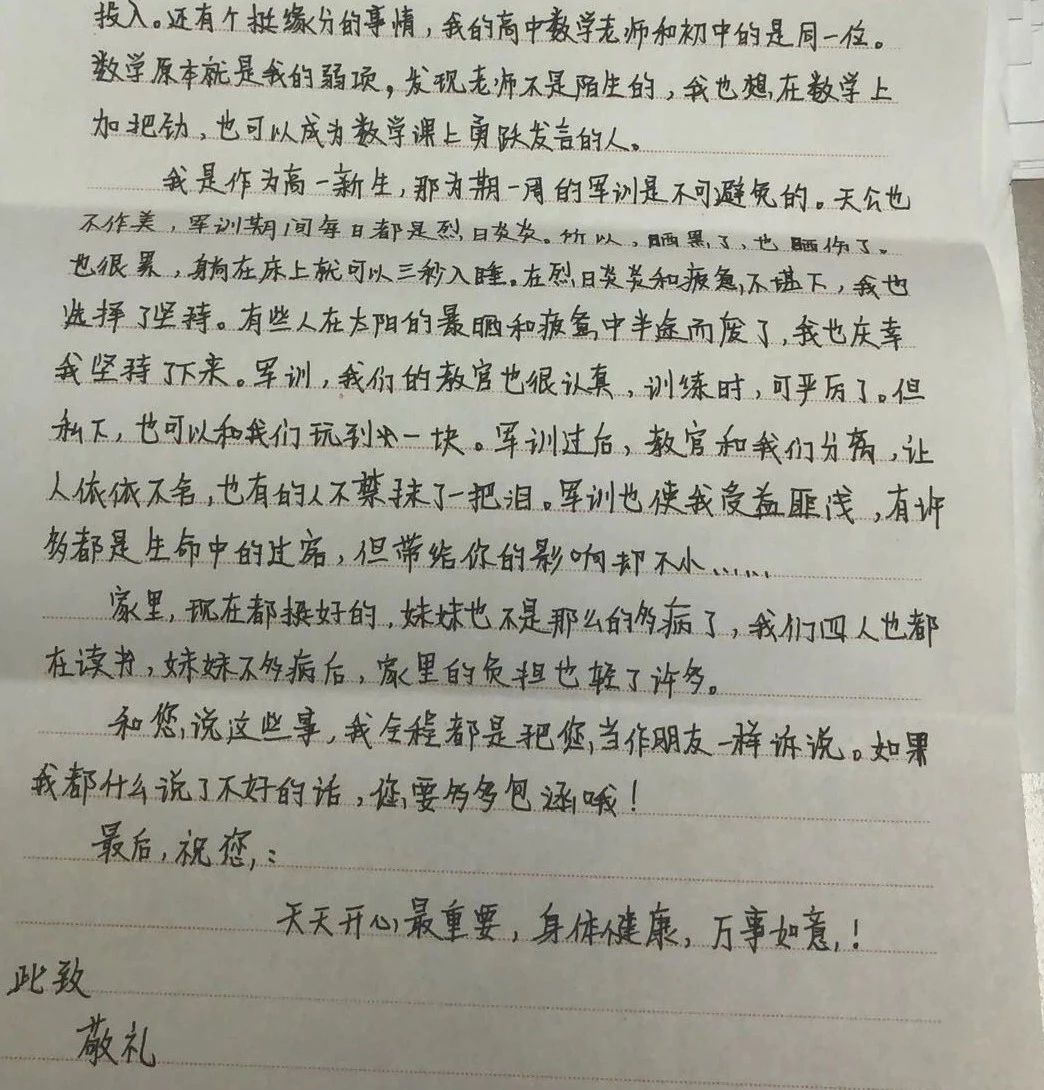 投入。还有个挺缘分的事情，我的高中数学老师和初中的是同一位。
数学原本就是我的弱项，发现老师不是陌生的，我也想在数学上
加把劲，也可以成为数学课上勇跃发言的人。
我是作为高一新生，那为期一周的军训是不可避免的。天公也
不作美，军训期间每日都是烈日炎炎。所以，晒黑了，也晒伤了。
也很累，躺在床上就可以三秒入睡。在烈日炎炎和疲惫不堪下，我也
选择了坚持。有些人在太阳的暴晒和疲惫中半途而废了，我也庆幸
我坚持了下来。军训，我们的教官也很认真，训练时，可严厉了。但
私下，也可以和我们玩到一块。军训过后，教官和我们分离，让
人依依不舍，也有的人不禁抹了一把泪。军训也使我受益匪浅，有许
多都是生命中的过客，但带给你的影响却不小……
家里，现在都挺好的，妹妹也不是那么的多病了，我们四人也都
在读书，妹妹不多病后，家里的负担也轻了许多。
和您说这些事，我全程都是把您当作朋友一样诉说。如果
我都什么说了不好的话，您要多多包涵哦！
最后，祝您：
天天开心最重要，身体健康，万事如意！
此致
敬礼